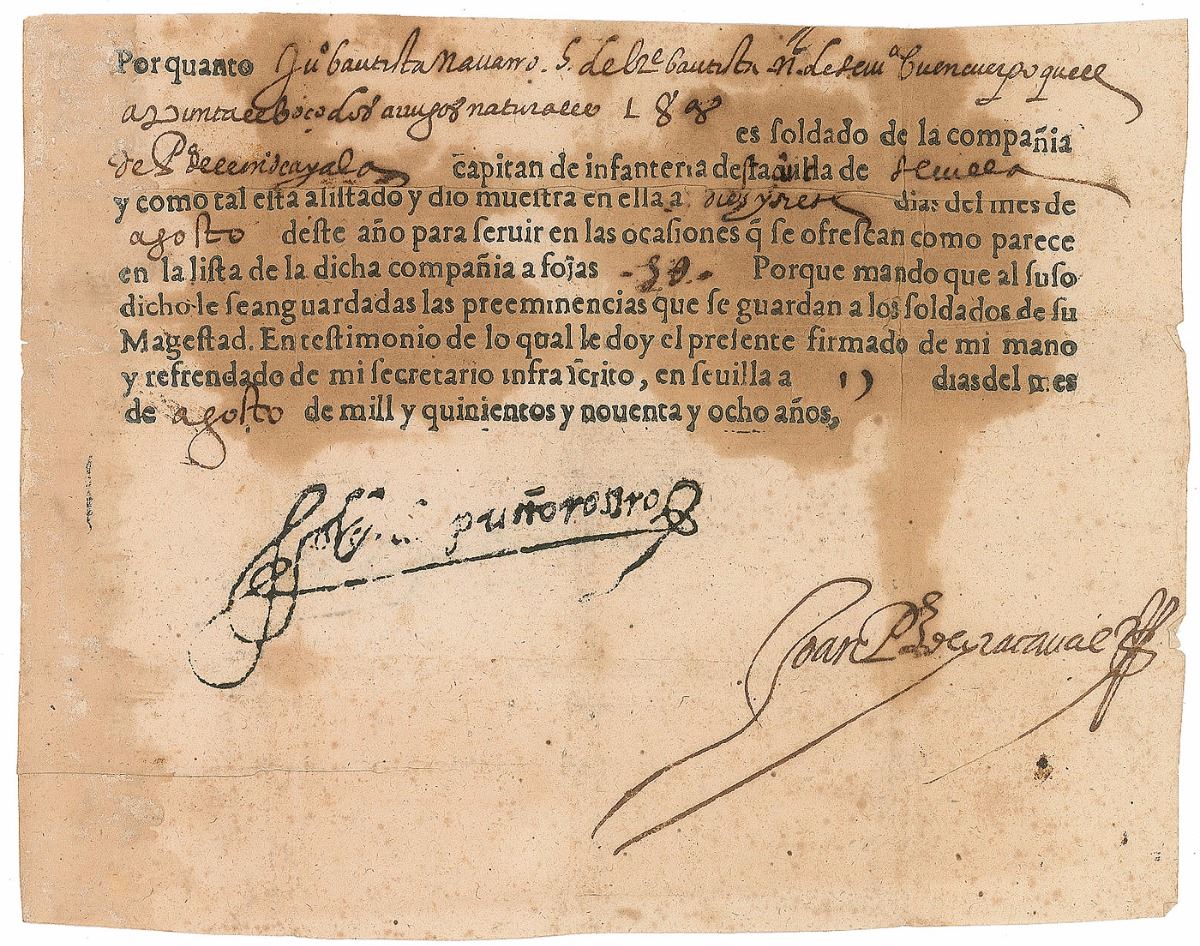 Por quanto Juº bautista Navarro. S. de bautista buen cuerpo que le
apunta el boço dos naturales 18 aº
es soldado de la compañia
de capitan de infanteria desta villa de Sevilla
y como tal esta alistado y dio muestra en ella a diez y siete dias del mes de
agosto deste año para seruir en las ocasiones q̃ se ofrescan como parece
en la lista de la dicha compañia a fojas Porque mando que al suso
dicho le sean guardadas las preeminencias que se guardan a los soldados de su
Magestad. En testimonio de lo qual le doy el presente firmado de mi mano
y refrendado de mi secretario infrascrito, en seuilla a 17 dias del mes
de agosto de mill y quinientos y nouenta y ocho años,
puñorostro
Joan